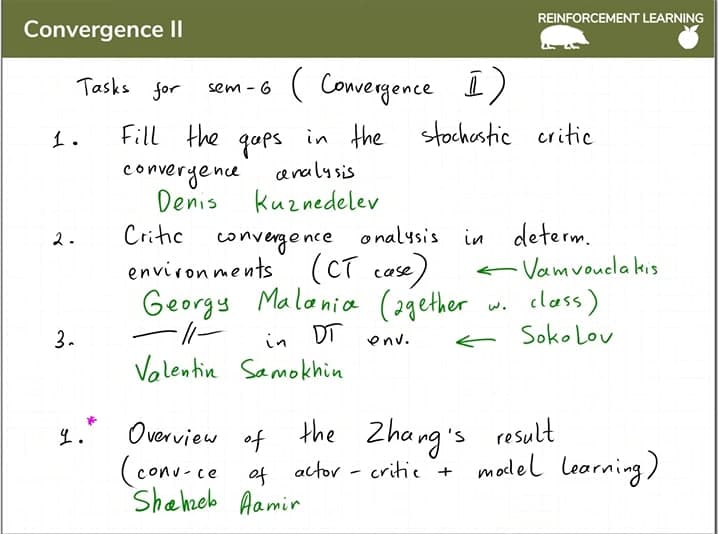 Convergence II
REINFORCEMENT LEARNING
Tasks for sem-6 ( Convergence II )
1. Fill the gaps in the stochastic critic
convergence analysis
Denis Kuznedelev
2. Critic convergence analysis in determ.
environments (CT case) ← Vamvoudakis
Georgy Malania (together w. class)
3. —//— in DT env. ← Sokolov
Valentin Samokhin
4.* Overview of the Zhang's result
(conv-ce of actor - critic + model learning)
Shahzeb Aamir